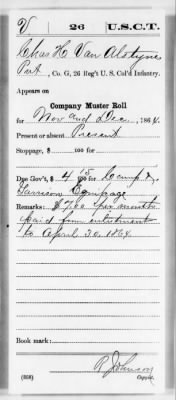 V 26 U.S.C.T.
Chas H. Van Alstyne
Pvt., Co. G, 26 Reg't U. S. Col'd Infantry.
Appears on
Company Muster Roll
for Nov and Dec, 1864.
Present or absent Present
Stoppage, $ 100 for
Due Gov't, $ 4 15/100 for Camp &
Garrison Equipage
Remarks: $7.00 per month
paid from enlistment
to April 30, 1864.
Book mark:
R Johnson
(858) Copyist.